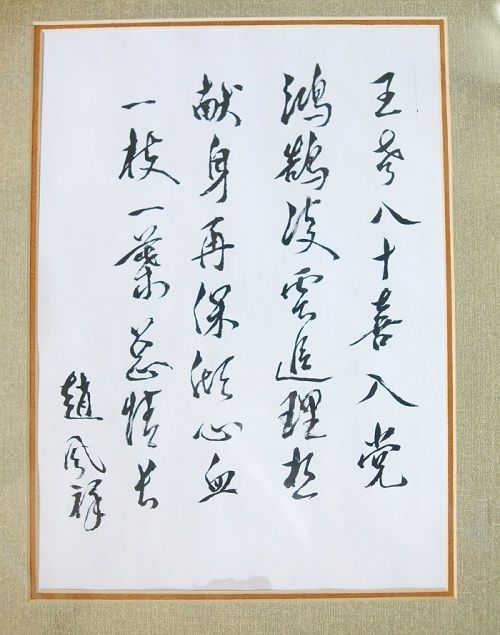 王老八十喜入党
鸿鹄凌雲追理想
献身再保倾心血
一枝一葉总情长
趙凤祥